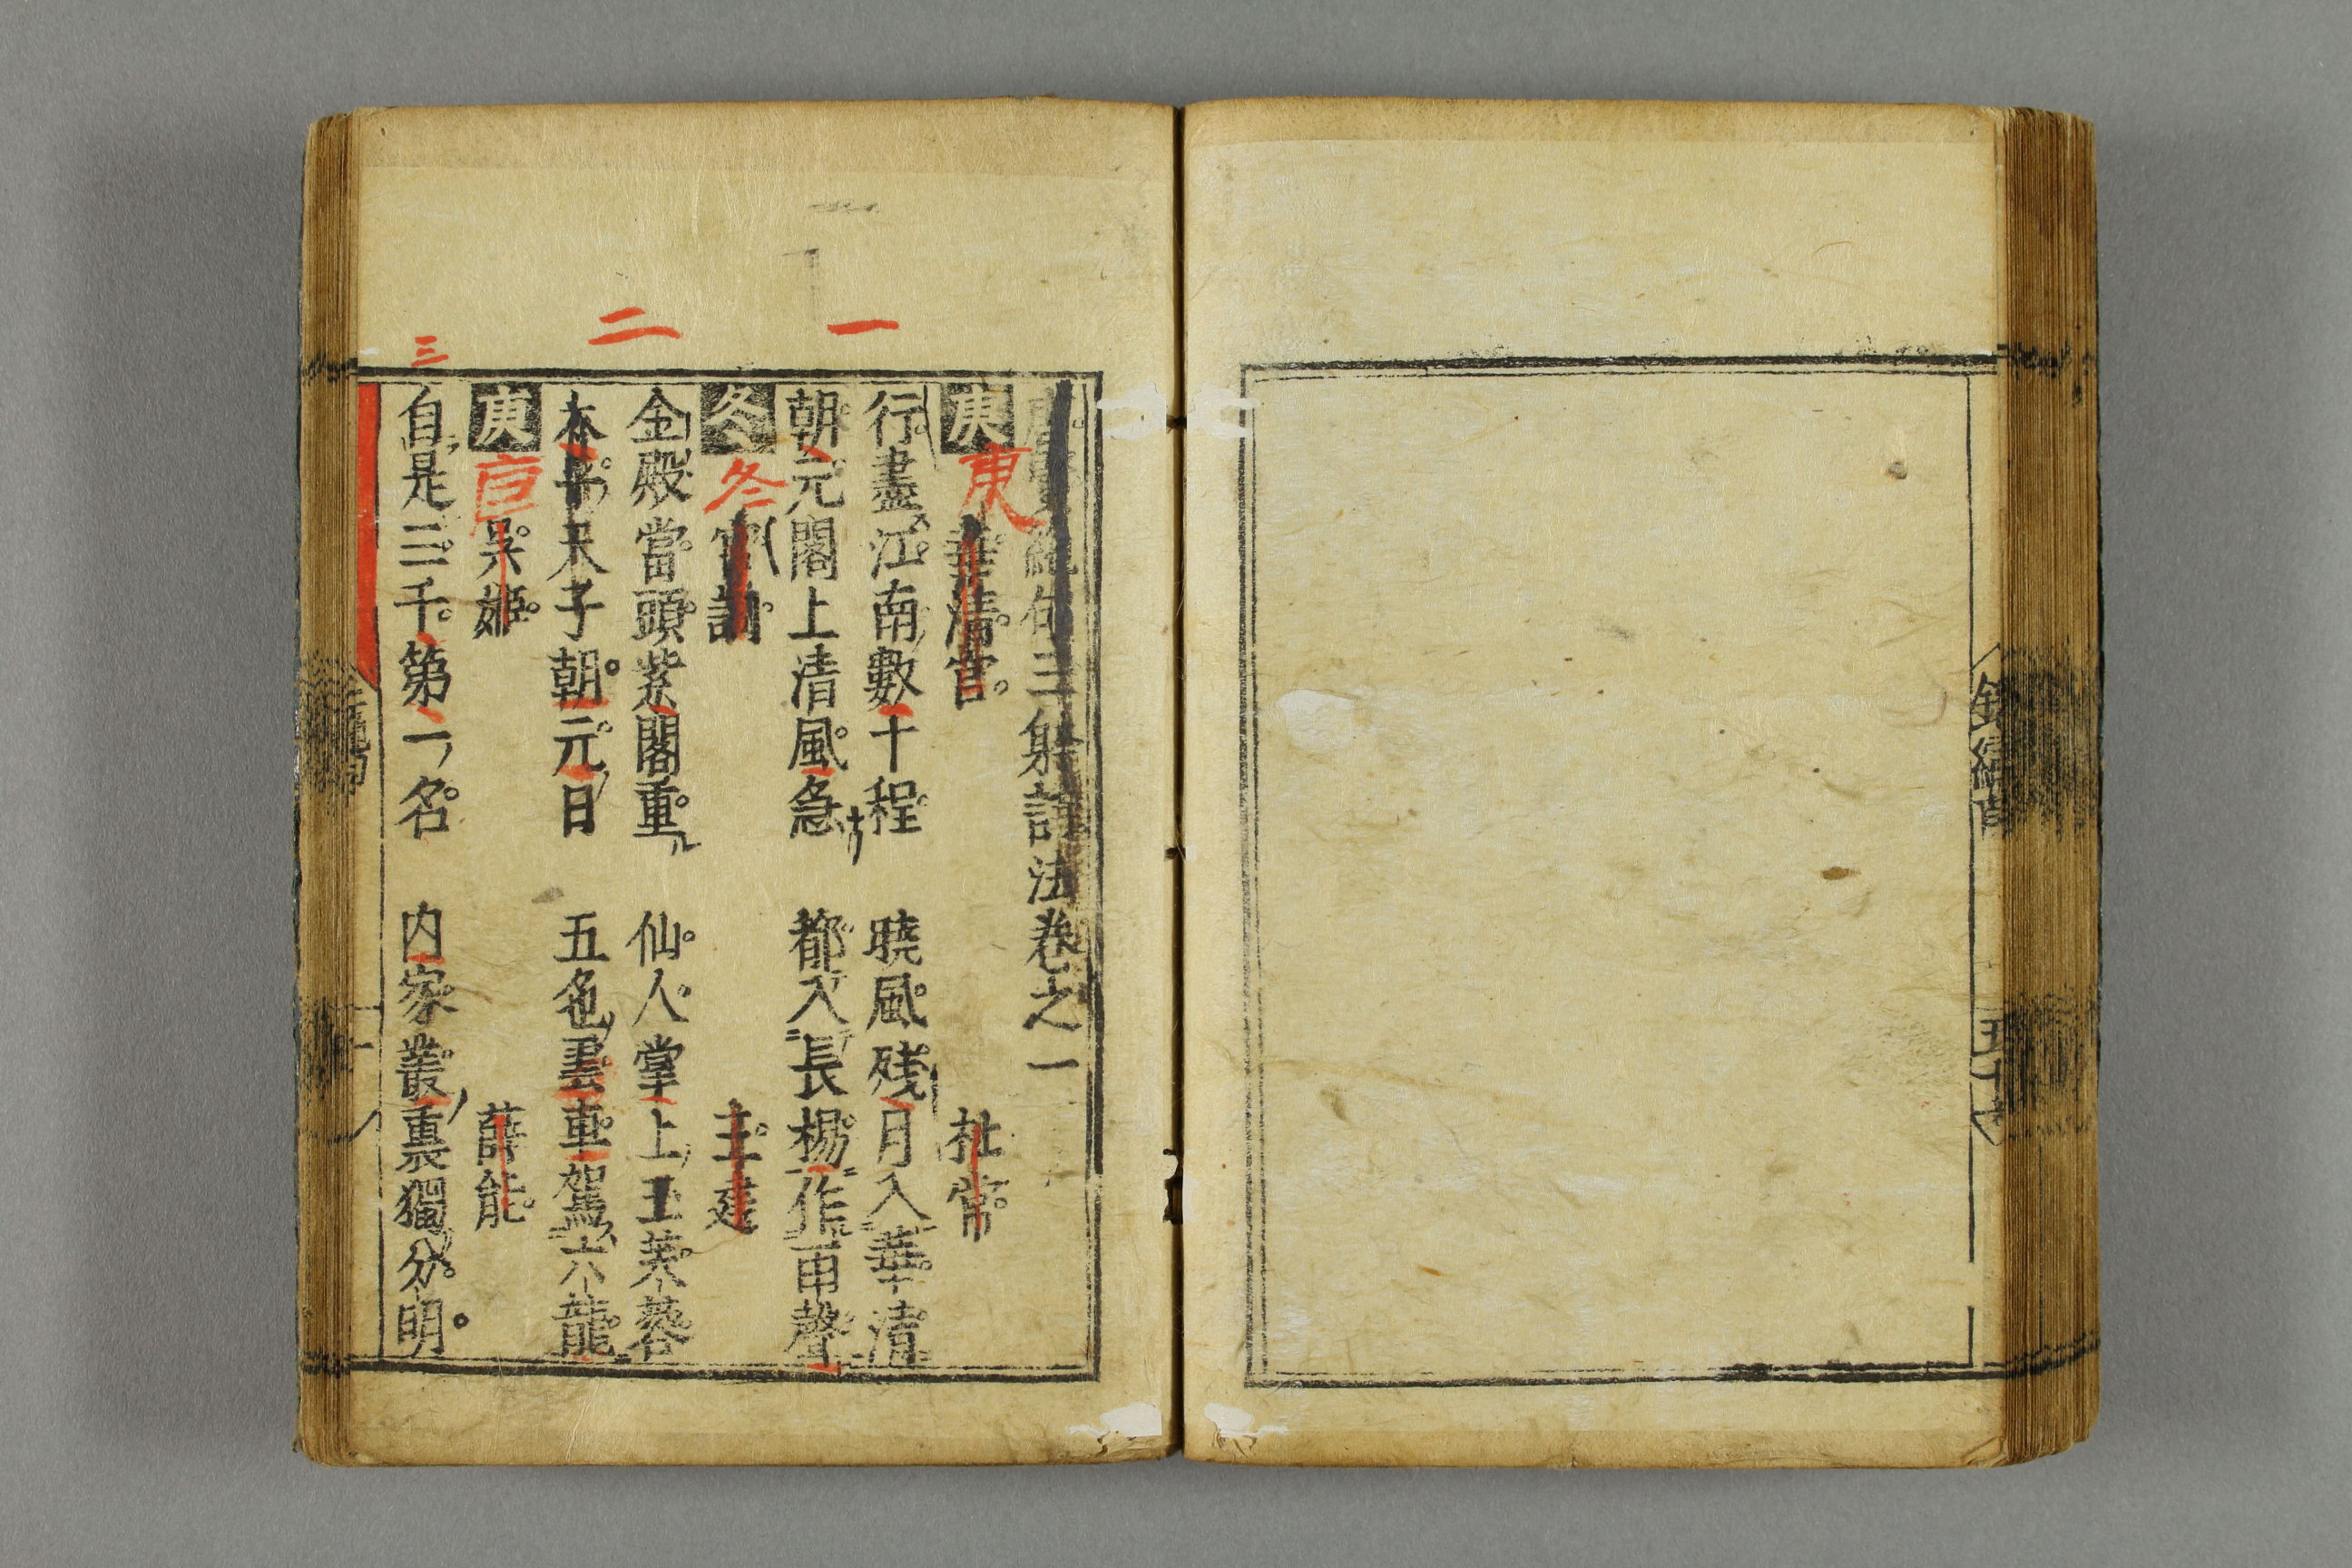 唐賢絶句三躰詩法卷之一
東 東 華清宮 杜常
一
行盡江南數十程 曉風殘月入華清
朝元閣上清風急 都入長楊作雨聲
冬 冬 宮詞 王建
二
金殿當頭紫閣重 仙人掌上玉芙蓉
太平天子朝元日 五色雲車駕六龍
庚 庚 吳姬 薛能
三
自是三千第一名 内家叢裏獨分明